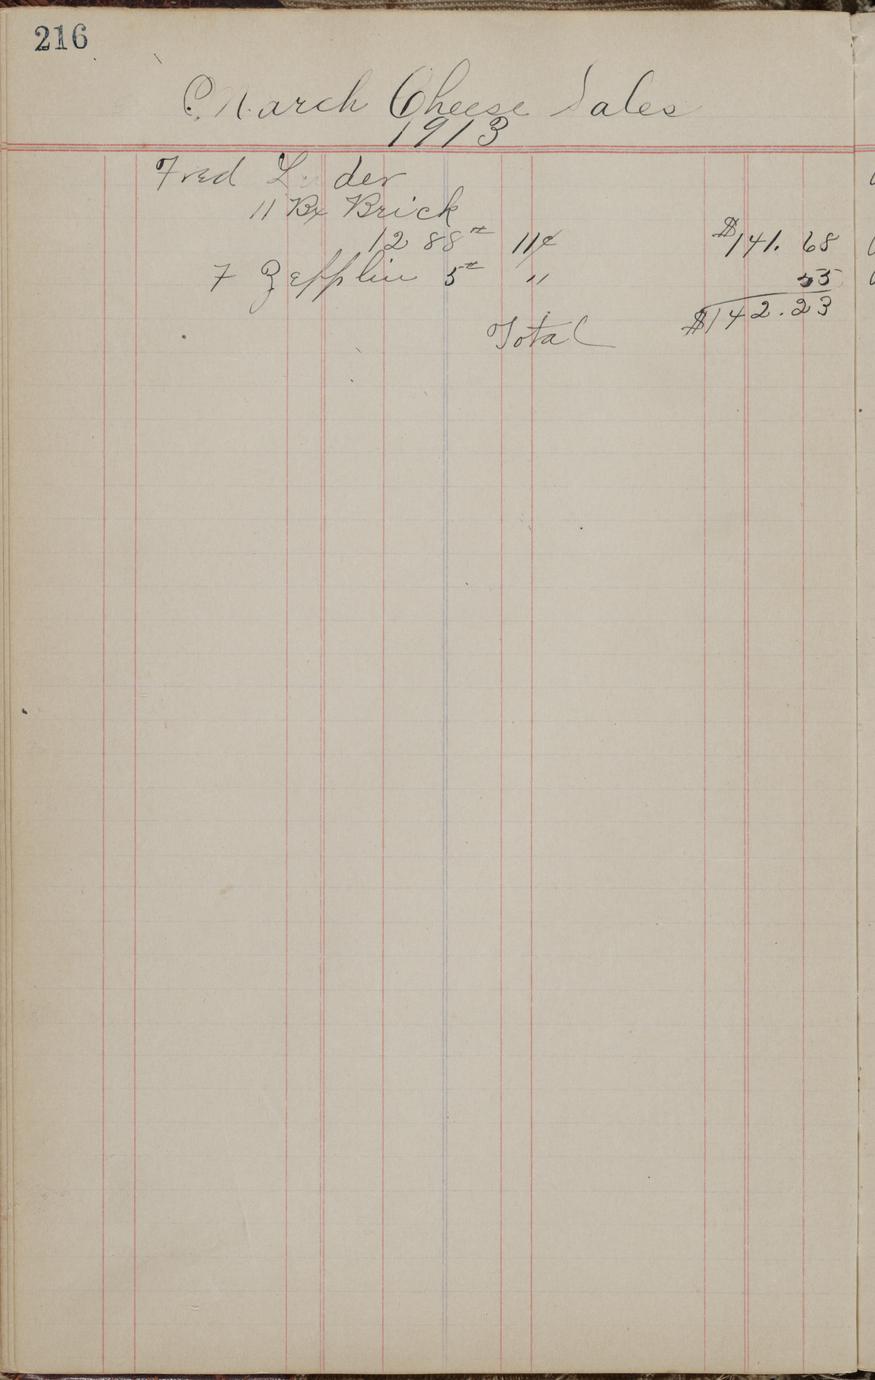 216
March Cheese Sales
1913
Fred
11 Bx Brick
1288# 11¢ $141.68
5# " 55
$142.23
Total